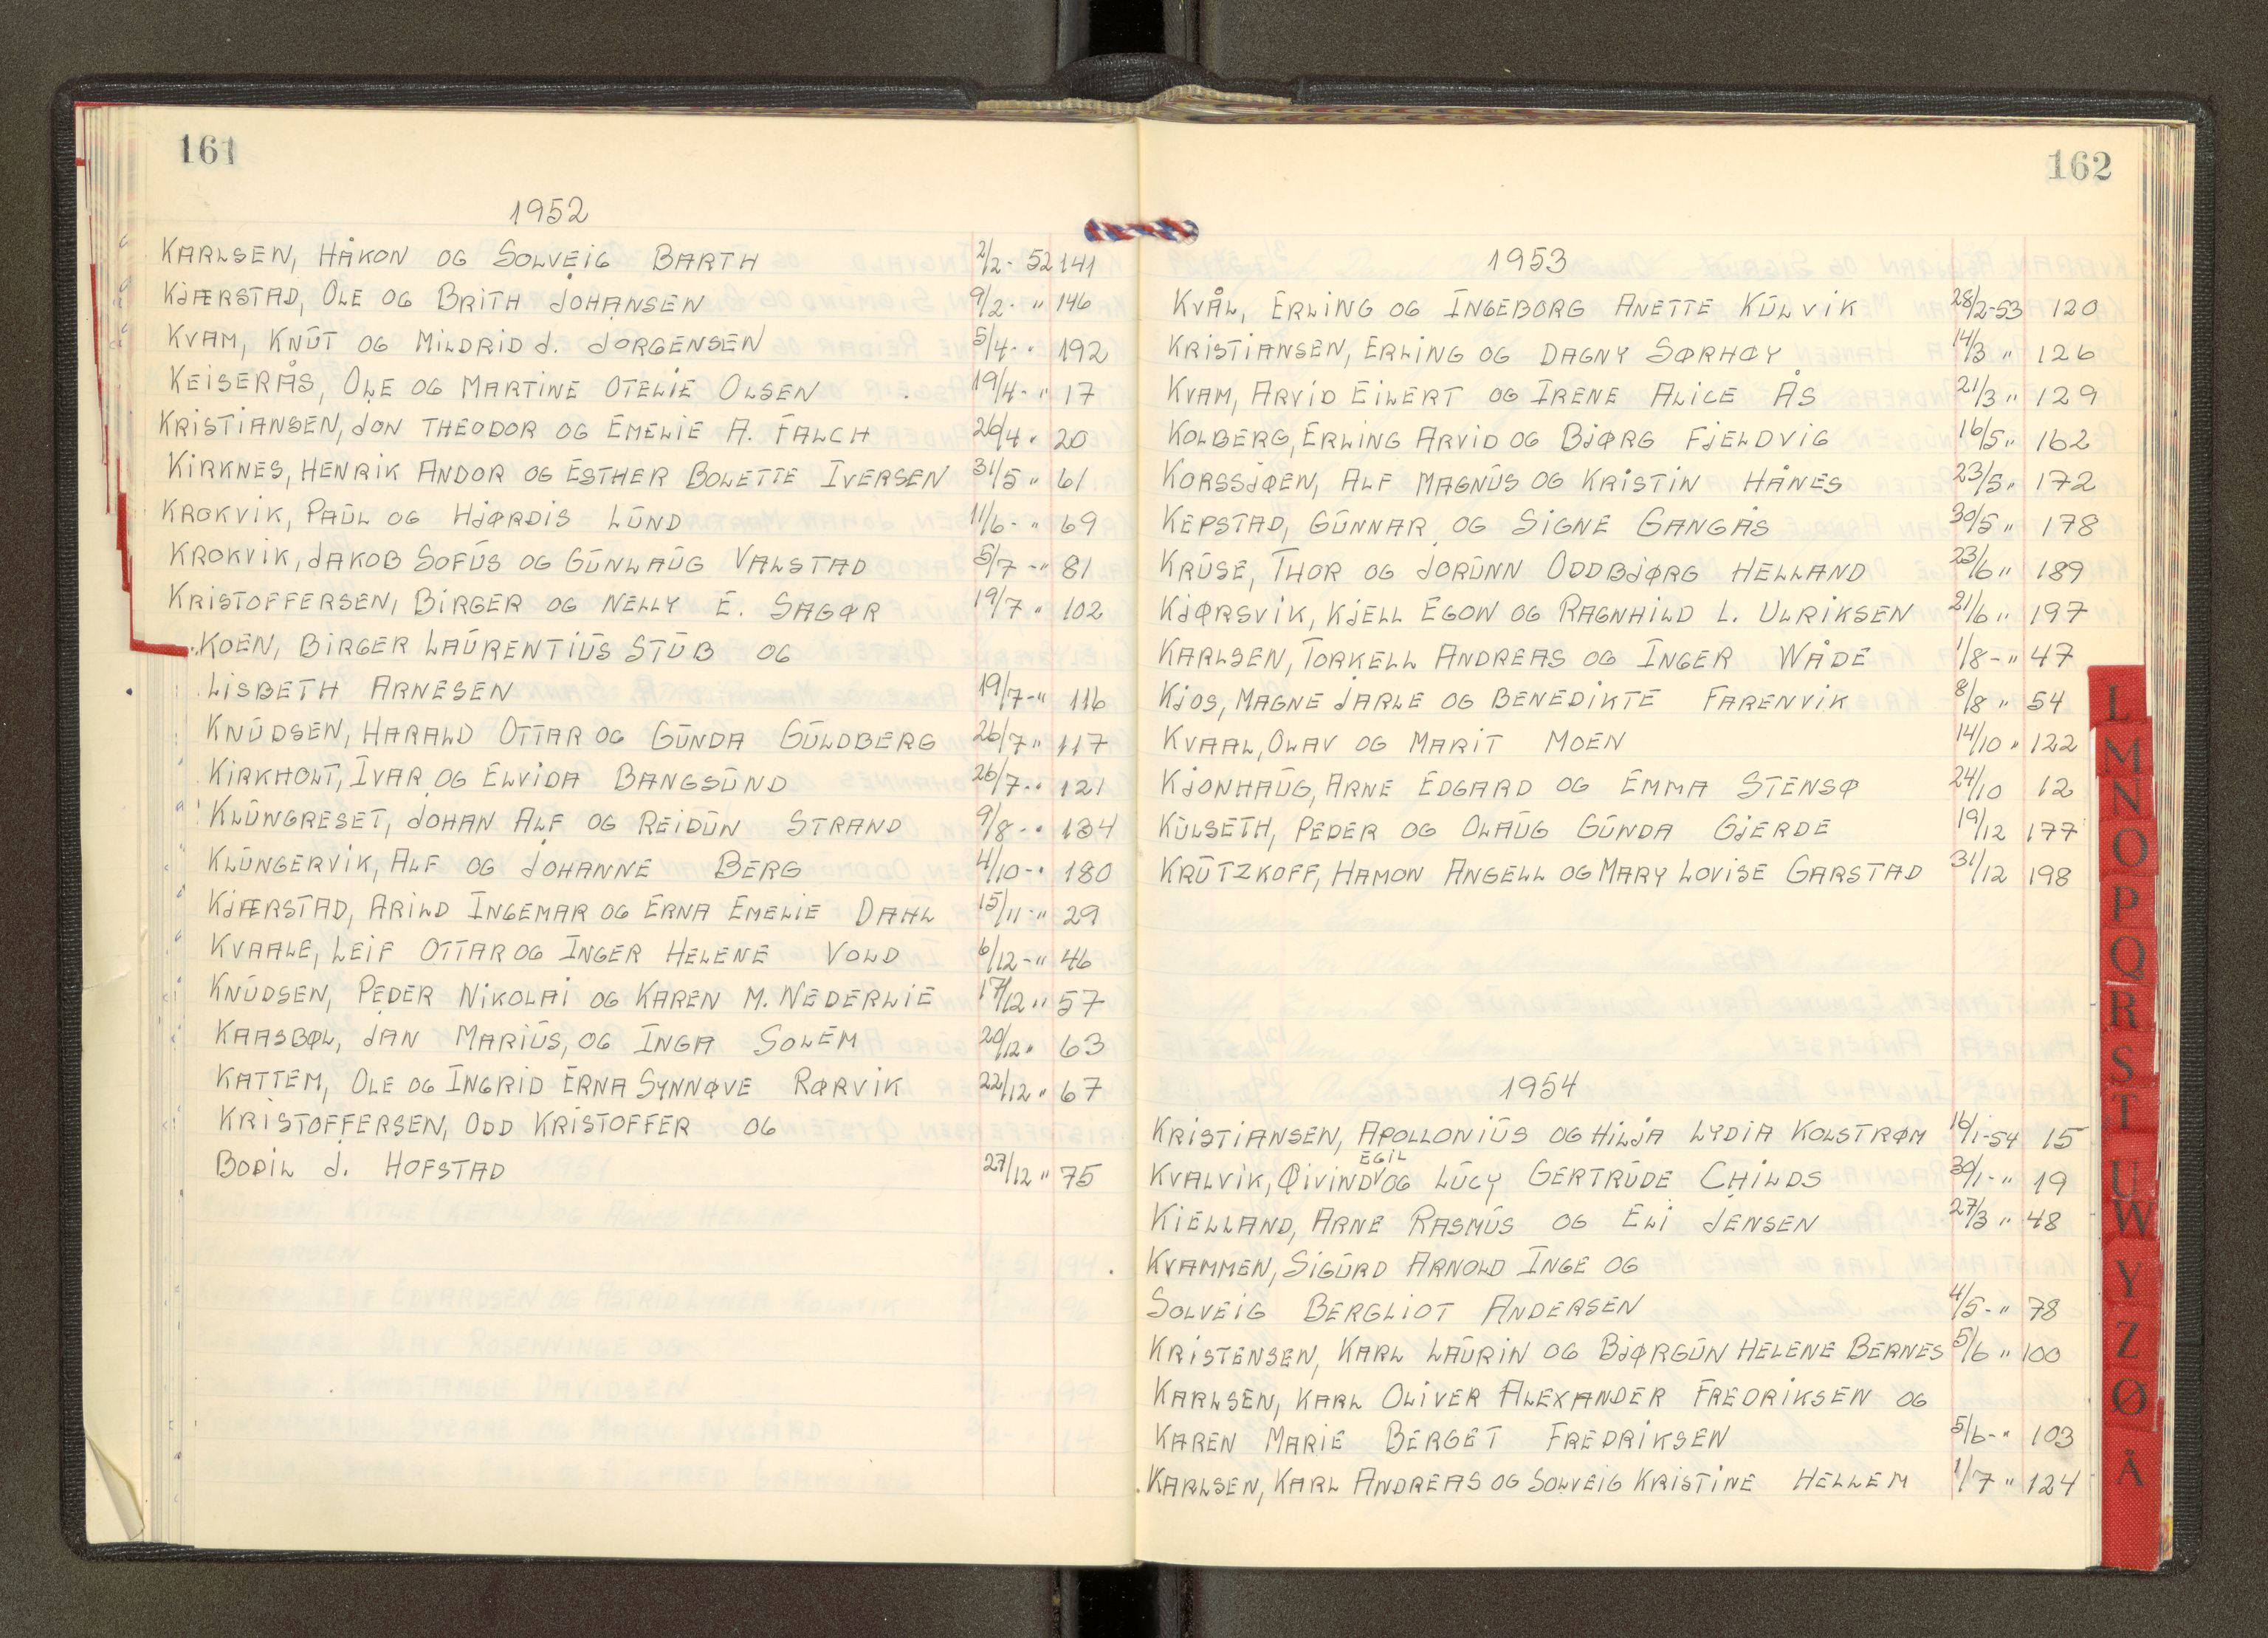 161
1952
KARLSEN, HÅKON OG SOLVEIG BARTH 2/2- 52 141
KJÆRSTAD, OLE OG BRITH JOHANSEN 9/2- " 146
KVAM, KNUT OG MILDRID J. JORGENSEN 5/4- " 192
KEISERÅS, OLE OG MARTINE OTELIE OLSEN 19/4- " 17
KRISTIANSEN, JON THEODOR OG EMELIE A. FALCH 26/4 " 20
KIRKNES, HENRIK ANDOR OG ESTHER BOLETTE IVERSEN 31/5 " 61
KROKVIK, PAUL OG HJØRDIS LUND 11/6- " 69
KROKVIK, JAKOB SOFUS OG GUNLAUG VALSTAD 5/7 - " 81
KRISTOFFERSEN, BIRGER OG NELLY E. SAGØR 19/7 " 102
KOEN, BIRGER LAURENTIUS STUB OG
LISBETH ARNESEN 19/7- " 116
KNUDSEN, HARALD OTTAR OG GUNDA GULDBERG 26/7 " 117
KIRKHOLT, IVAR OG ELVIDA BANGSUND 26/7- " 121
KLUNGRESET, JOHAN ALF OG REIDUN STRAND 9/8- " 134
KLUNGERVIK, ALF OG JOHANNE BERG 4/10- " 180
KJÆRSTAD, ARILD INGEMAR OG ERNA EMELIE DAHL 15/11- " 29
KVAALE, LEIF OTTAR OG INGER HELENE VOLD 6/12- " 46
KNUDSEN, PEDER NIKOLAI OG KAREN M. NEDERLIE 17/12 " 57
KAASBØL, JAN MARIUS, OG INGA SOLEM 20/12 " 63
KATTEM, OLE OG INGRID ERNA SYNNØVE RØRVIK 22/12 " 67
KRISTOFFERSEN, ODD KRISTOFFER OG
BODIL J. HOFSTAD 27/12 " 75
162
1953
KVÅL, ERLING OG INGEBORG ANETTE KULVIK 28/2-53 120
KRISTIANSEN, ERLING OG DAGNY SØRHØY 14/3 " 126
KVAM, ARVID EILERT OG IRENE ALICE ÅS 21/3 " 129
KOLBERG, ERLING ARVID OG BJØRG FJELDVIG 16/5 " 162
KORSSJØEN, ALF MAGNUS OG KRISTIN HÅNES 23/5 " 172
KEPSTAD, GUNNAR OG SIGNE GANGÅS 30/5 " 178
KRUSE, THOR OG JORUNN ODDBJØRG HELLAND 23/6 " 189
KJØRSVIK, KJELL EGON OG RAGNHILD L. ULRIKSEN 21/6 " 197
KARLSEN, TORKELL ANDREAS OG INGER WÅDE 1/8- " 47
KJOS, MAGNE JARLE OG BENEDIKTE FARENVIK 8/8 " 54
KVAAL, OLAV OG MARIT MOEN 14/10 " 122
KJONHAUG, ARNE EDGARD OG EMMA STENSØ 24/10 12
KULSETH, PEDER OG OLAUG GUNDA GJERDE 19/12 177
KRUTZKOFF, HAMON ANGELL OG MARY LOVISE GARSTAD 31/12 198
1954
KRISTIANSEN, APOLLONIUS OG HILJA LYDIA KOLSTRØM 16/1-54 15
EGIL
KVALVIK, ØIVIND OG LUCY GERTRUDE CHILDS 30/1- " 19
KIELLAND, ARNE RASMUS OG ELI JENSEN 27/3 " 48
KVAMMEN, SIGURD ARNOLD INGE OG
SOLVEIG BERGLIOT ANDERSEN 4/5- " 78
KRISTENSEN, KARL LAURIN OG BJØRGUN HELENE BERNES 5/6 " 100
KARLSEN, KARL OLIVER ALEXANDER FREDRIKSEN OG
KAREN MARIE BERGET FREDRIKSEN 5/6- " 103
KARLSEN, KARL ANDREAS OG SOLVEIG KRISTINE HELLEM 1/7 " 124
L
M
N
O
P
Q
R
S
T
U
W
Y
Z
Ø
Å